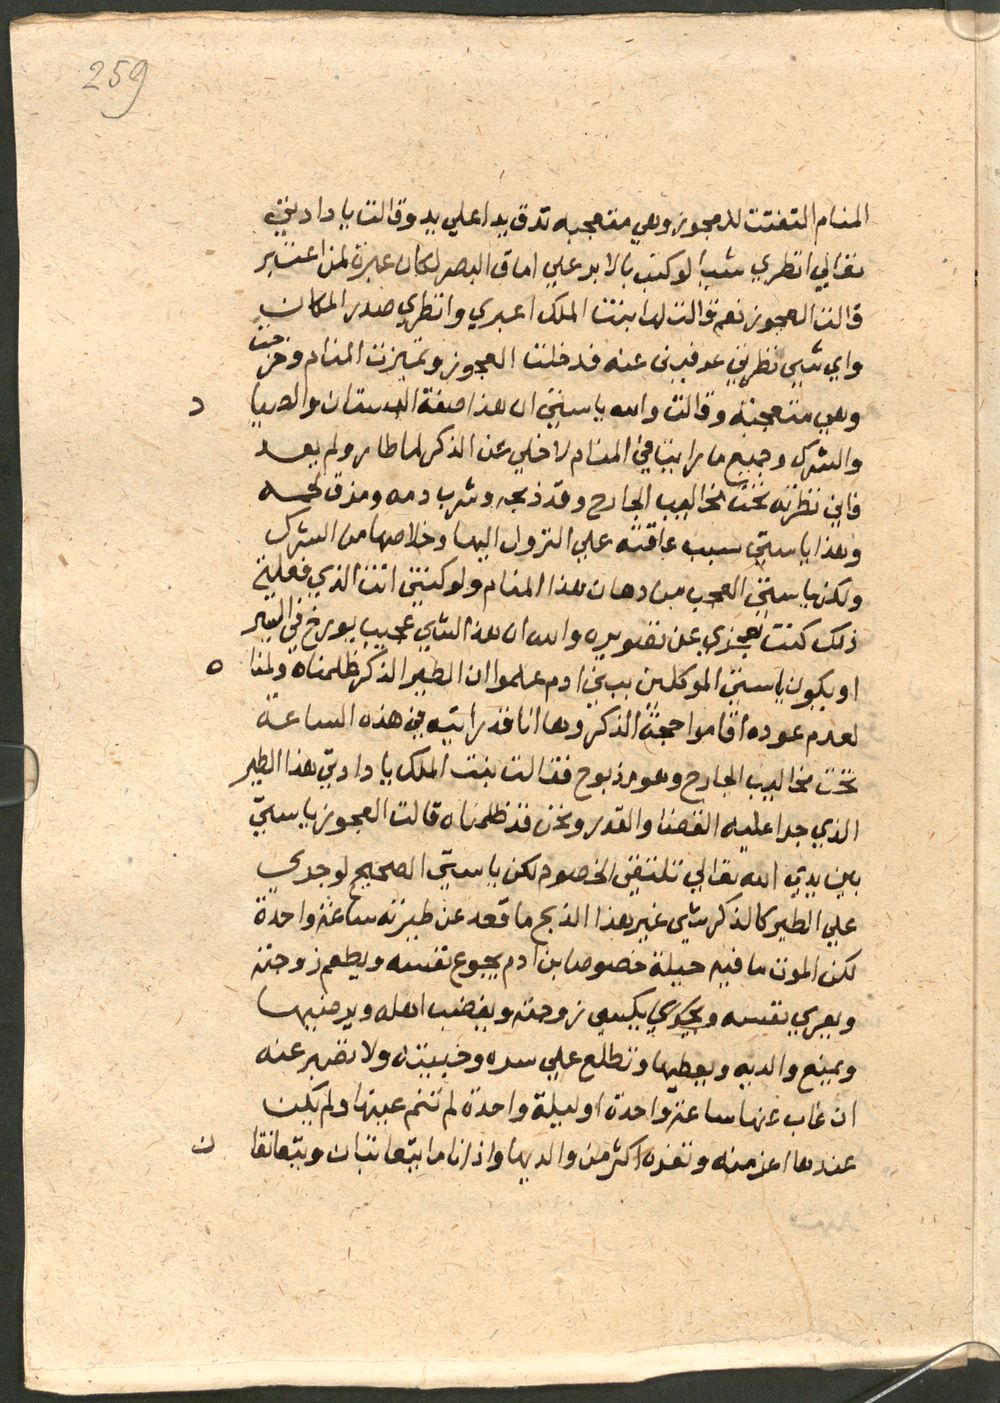 259
المنام التفتت للعجوز وهي متعجبه تدق يدا علي يد وقالت يا دادتي
تعالي انظري شيا لو كتب بالابر علي اماق البصر لكان عبرة لمن اعتبر
قالت العجوز نعم قالت لها ابنت الملك اعبري وانظري صدر المكان
واي شي نظرتي عرفيني عنه فدخلت العجوز وتميزت المنام وخرجت
وهي متعجبة وقالت والله يا ستي ان هذا صفة البستان والصيا د
والشرك وجميع ما رايتي في المنام لا خلي عن الذكر لما طار ولم يعد
فاني نظرته تحت مخاليب الجارح وقد ذبحه وشرب دمه ومزق لحمه
وهذا يا ستي سبب عاقته علي النزول اليها وخلاصها من الشرك
ولكن يا ستي العجب من دهان هذا المنام ولو كنتي انت الذي فعلتي
ذلك كنت تعجزي عن تصويره والله ان هذا الشي عجيب يورخ في السير
او يكون يا ستي الموكلين ببني ادم علموا ان الطير الذكر ظلمناه ولمنا ه
لعدم عوده اقاموا حجة الذكر وها انا قد رايته في هذه الساعة
تحت مخاليب الجارح وهو مذبوح فقالت بنت الملك يا دادتي هذا الطير
الذي جرا عليه القضا والقدر ونحن قد ظلمناه قالت العجوز يا ستي
بين يدي الله تعالي تلتقي الخصوم لكن يا ستي الصحيح لو جري
علي الطير كالذكر شي غير هذا الذبح ما قعد عن طيرته ساعة واحدة
لكن الموت ما فيه حيلة خصوصا بن ادم يجوع نفسه ويطعم زوجته
ويعري نفسه ويكسي زوجته ويغضب اهله ويرضيها
ويمنع والديه ويعطيها وتطلع علي سره وخبيته ولا تصبر عنه
ان غاب عنها ساعة واحدة او ليلة واحدة لم تنم عينها ولم يكن
عندها اعز منه وتعزه اكثر من والديها واذا ناما يتعانقان ويتعانقا ن